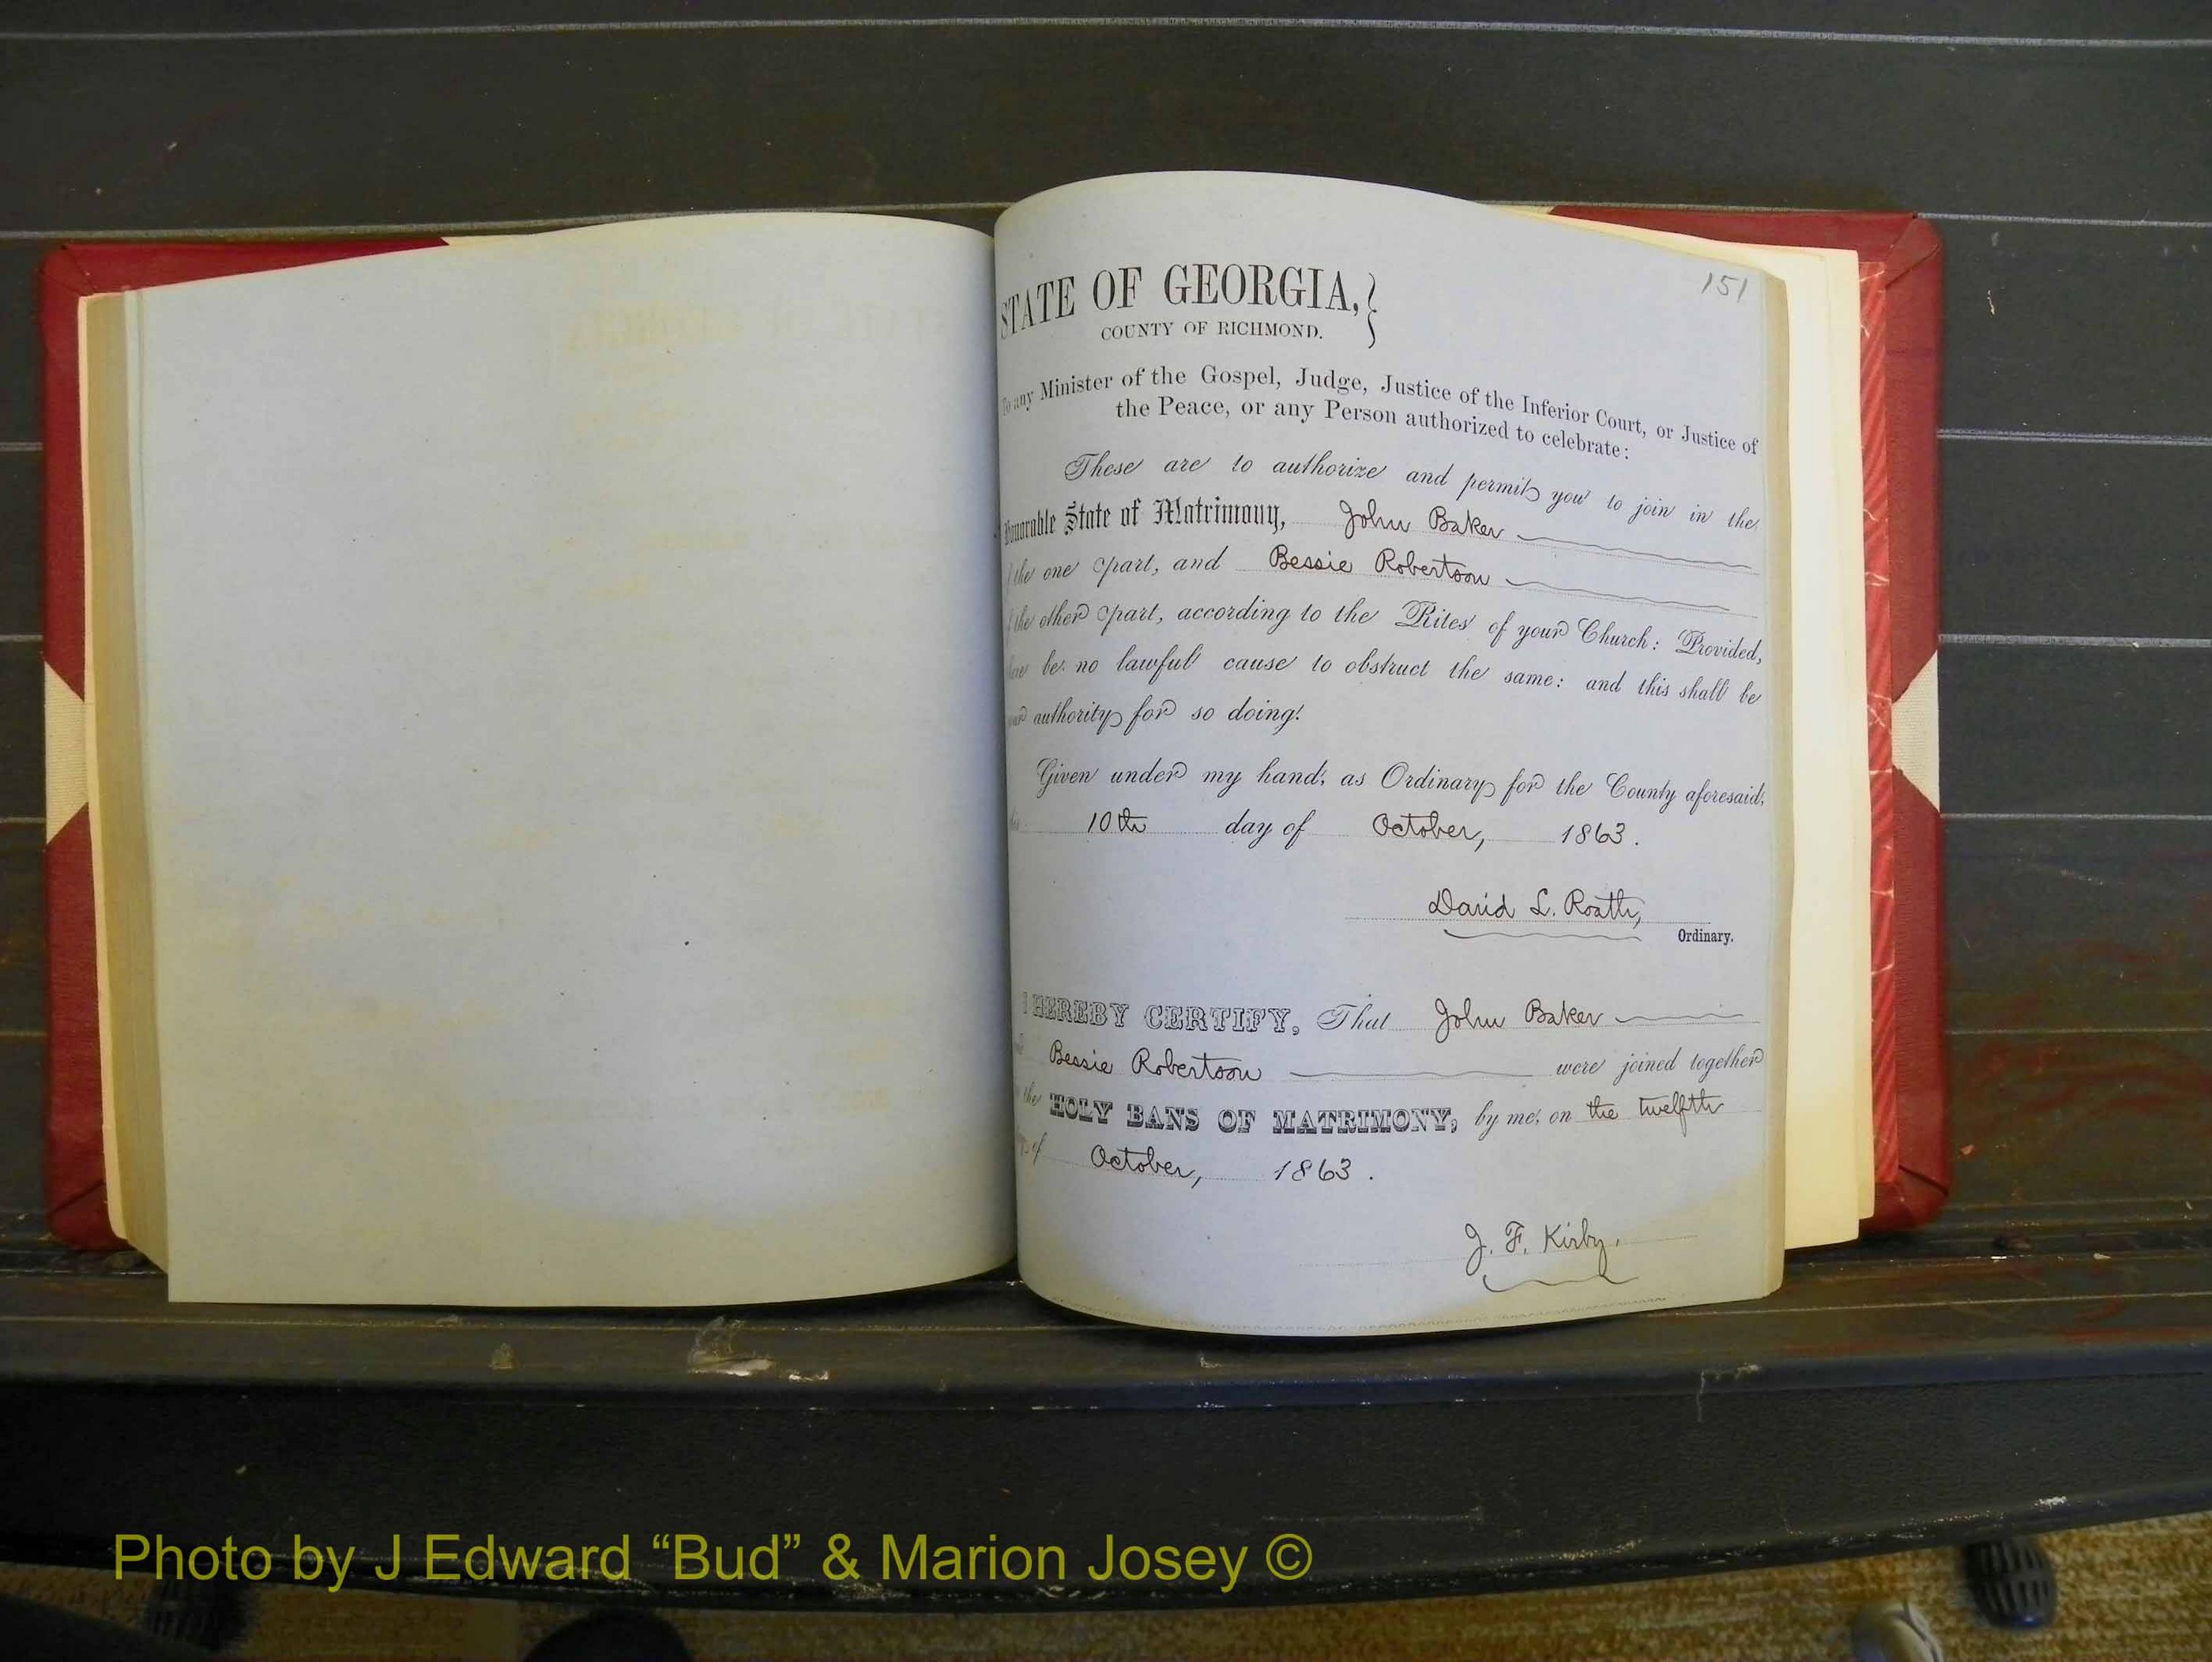 151
STATE OF GEORGIA,}
COUNTY OF RICHMOND.
To any Minister of the Gospel, Judge, Justice of the Inferior Court, or Justice of
the Peace, or any Person authorized to celebrate:
These are to authorize and permit you to join in the
Honorable State of Matrimony, John Baker
the one part, and Bessie Robertson
the other part, according to the Rites of your Church: Provided,
there be no lawful cause to obstruct the same: and this shall be
your authority for so doing.
Given under my hand, as Ordinary for the County aforesaid,
this 10th day of October, 1863.
David L. Roath,
Ordinary.
I HEREBY CERTIFY, That John Baker
and Bessie Robertson were joined together
in the HOLY BANS OF MATRIMONY, by me, on the twelfth
of October, 1863.
J. F. Kirby.
Photo by J Edward “Bud” & Marion Josey ©